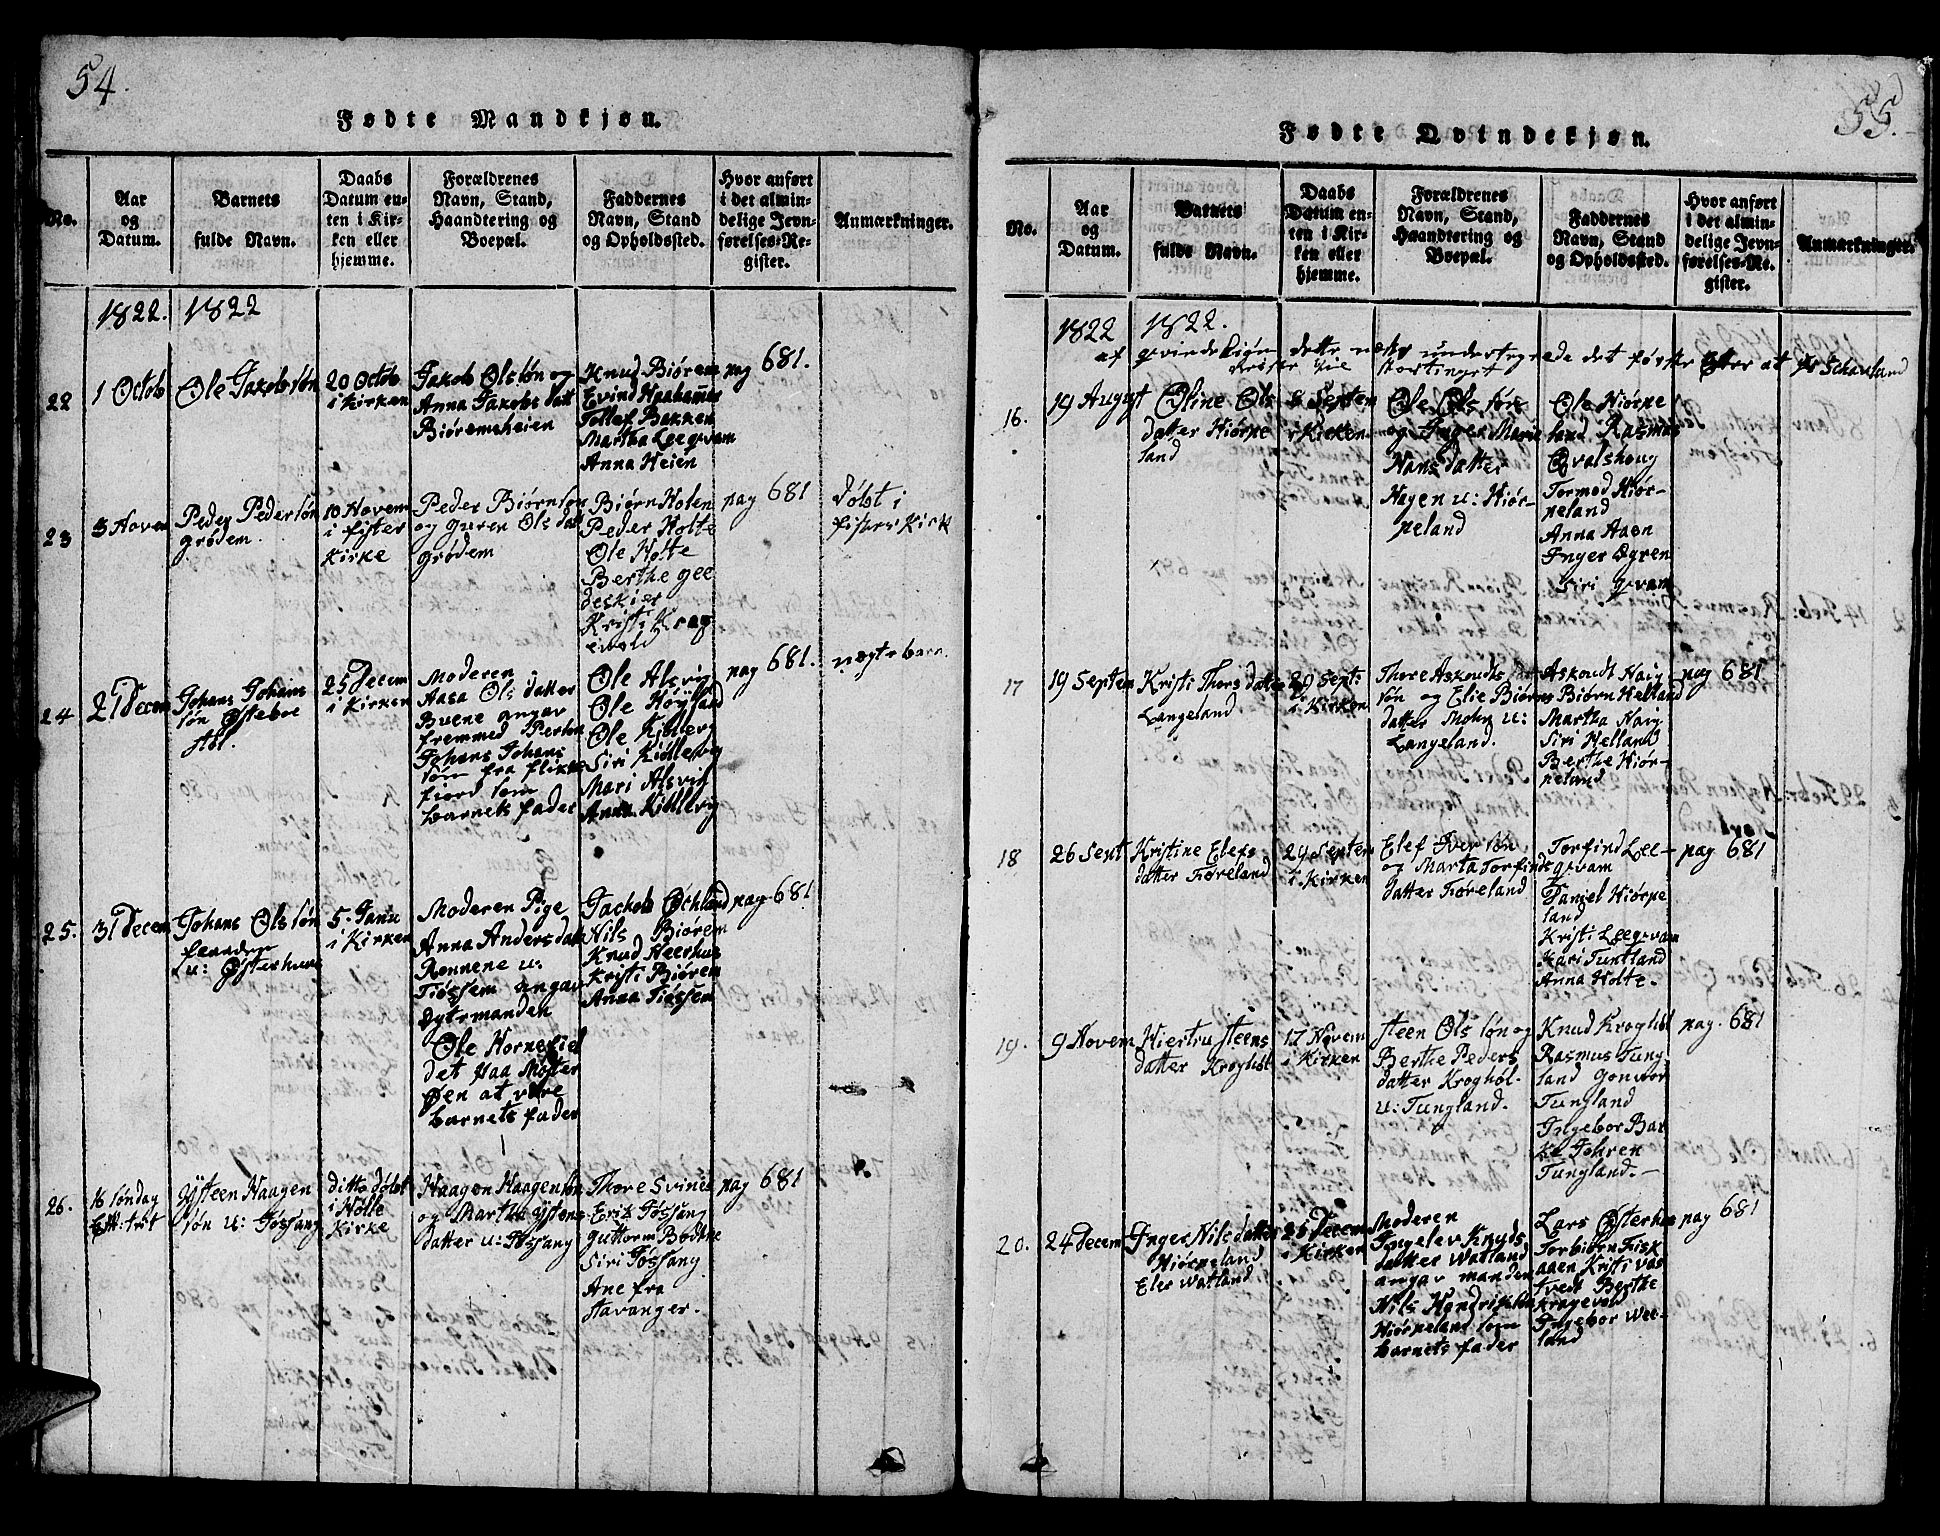 54.
Fødte Mandkjøn.
No.
Aar
og
Datum.
Barnets
fulde Navn.
Daabs
Datum en-
ten i Kir-
ken eller
hjemme.
Forældrenes
Navn, Stand,
Haandtering og
Boepæl.
Faddernes
Navn, Stand
og Opholdssted.
Hvor anført
i det almin-
delige Jevn-
førelses-Re-
gister.
Anmærkninger.
1822. 1822
22
1 Octob
Ole Jakobsøn
20 Octob
i Kirken
Jakob Olssøn og
Anna Jakobs datt
Biøremsheien
Knud Biørem
Evind
Tollef Bakken
Martha Leeqvam
Anna Heien
pag 681.
23
3 Novem
Peder Pedersøn
grødem
10 Novem
i fister
Kirke
Peder Biørnsøn
og guren Ols dat
grødem
Biørn Holen
Peder Holte
Ole Holte
Berthe gee
deskier
Kristi Krag
evold
pag 681
døbt i
fister Kirk
24
21 Decem
Johans Johans
søn Østeboe
støl.
25 Decem
i Kirken
Moderen
Aasa Ols datter
Buene angav
fremmed Person
Johans Johans
søn fra flikke
fiord som
barnets fader
Ole Alsvig
Ole Høyland
Ole Kidlevg
Siri Kidlevg
Mari Alsvig
Anna Kidlevg
pag 681.
uægte barn.
25.
31 Decem
Johans Olssøn
u: Østerhuus
5. Janu
i Kirken
Moderen Pige
Anna Anders datt
Rønnene u:
Tiøssem angav
Ogtemanden
Ole Hornefiel
det paa Moster
Øen at være
barnets fader
Jackob Østland
Nils Biørem
Knud Heerhus
Kristi Biørem
Anna Tiøssem
pag 681
26.
16 søndag
Eftt: trit
ysteen Haagen
søn u: Jøssang
ditto døbt
i Holle
Kirke
Haagen Haagensøn
og Martha ystens
datter u: Jøssang
Thore Svines
Erik Jøssang
guttorm Bødtke
Siri Jøssang
Ane fra
stavanger.
pag 681
55.
Fødte Qvindekjøn.
No.
Aar
og
Datum.
Barnets
fulde Navn.
Daabs
Datum en-
ten i Kir-
ken eller
hjemme.
Forældrenes
Navn, Stand,
Haandtering og
Boepæl.
Faddernes
Navn, Stand
og Opholdssted.
Hvor anført
i det almin-
delige Jevn-
førelses-Re-
gister.
Anmærkninger.
1822 1822.
af qvindekiøn dette næst undertegnede det første Efter at Schauland
stortinget
16.
19 Augugt
Oline Ols
datter Hiørpe
land
8 Septem
i Kirken
Ole Ols søn
og Inger Marie
Hans datter
Hagen u: Hiør-
peland
Ole Hiørpe
land Rasmus
Qvalshoug
Tormod Hiør-
peland
Anna Aaen
Inger Ogren
Siri qvam
17
19 Septem
Kristi Thors datter
Langeland
29 Septi
i Kirken
Thore Askoudts
søn og Elie Biørns
datter Mohn u:
Langeland.
Askoudt Haig
Biørn Helland
Martha Haig
Siri Helland
Berthe Hiør-
peland
pag 681
18
26 Sept
Kristine Elefs
datter Tøreland
29 Septem
i Kirken
Elef Iver søn
og Marta Torfinds
datter Tøreland
Torfind Lee-
qvam
Daniel Hiørpe
land
Kristi Leeqvam
Kari Tuntland
Anna Holte.
pag 681
19.
9 Novem
Hiertru steens
datter Kroghøl
17 Novem
i Kirken
steen Ols søn og
Berthe Peders
datter Kroghøl-
u: Tungland.
Knud Kroghøl
Rasmus Tung-
land gonvor
Tungland
Ingebor Bar
Ka Johren
Tungland.
pag. 681
20.
24 Decem
Inger Nils datter
Hiørpeland
Eler Watland
25 Decem
i Kirken
Moderen
Ingelev Knuds
datter Watland
angav manden
Nils Hendriksøn
Hiørpeland som
barnets fader
Lars Østerhus
Torbiørn Fisk
aaen Kristi Vas
tvedt Berthe
Kragevol
Ingebor Wee-
land
pag 681